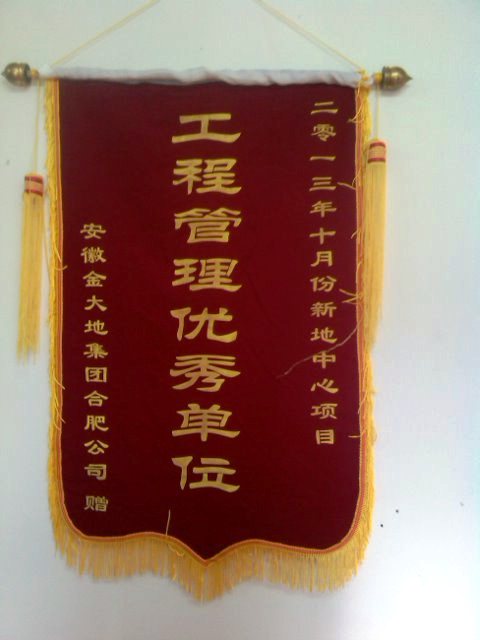 二零一三年十月份新地中心项目
工程管理优秀单位
安徽金大地集团合肥公司 赠